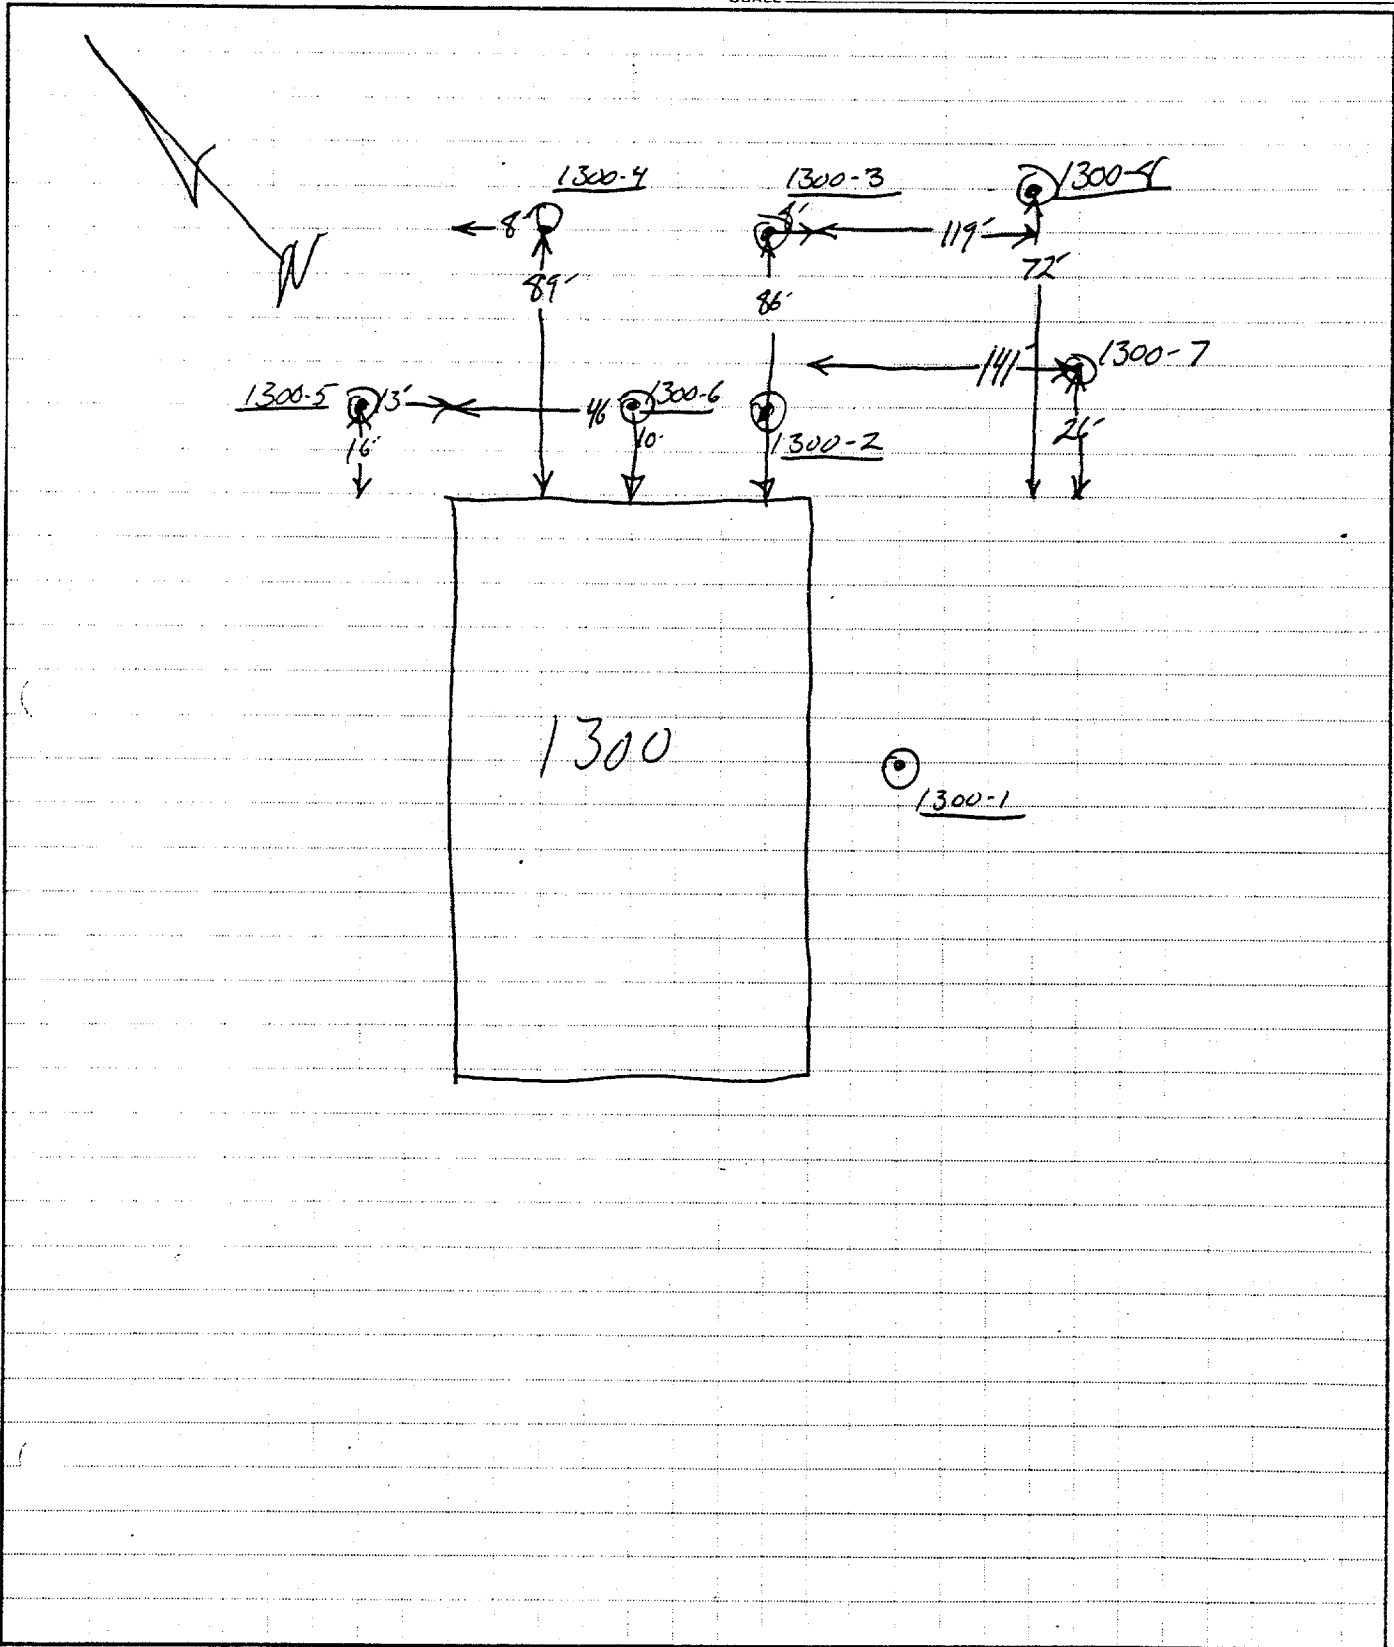 1300-4
1300-3
1300-8
8'
119'
89'
86'
72'
141'
1300-7
1300-5
13'
46
1300-6
16'
10'
1300-2
26'
N
1300
1300-1